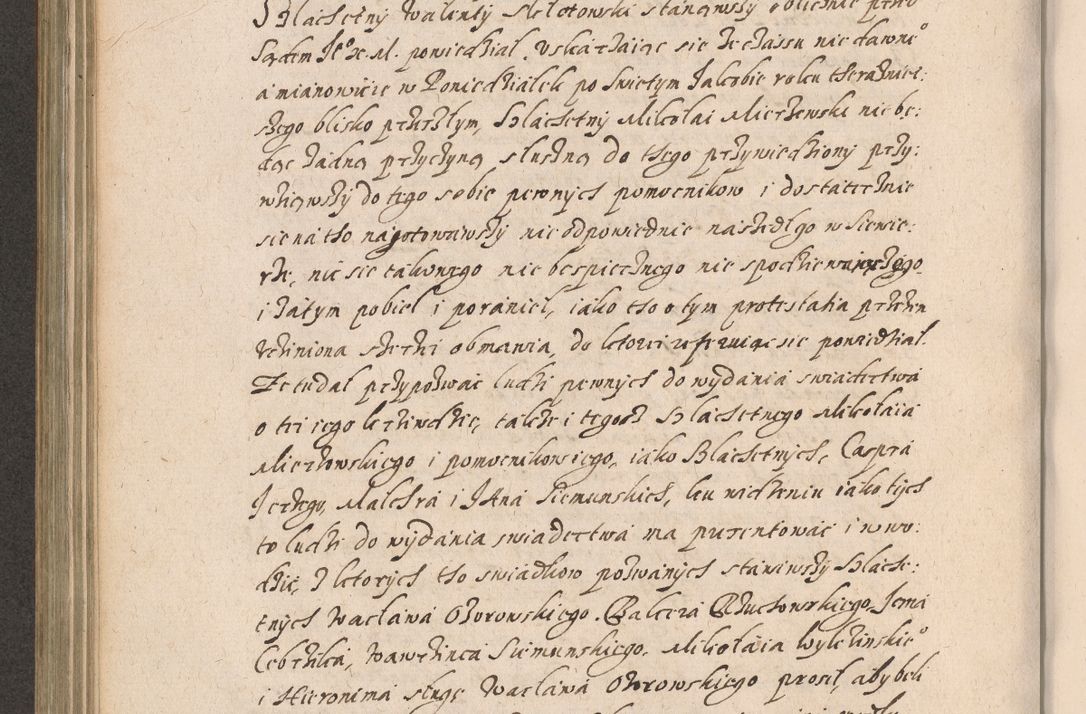 Szlachetny Walenty Sleletowski stanąwszy oblicznie przed
Sądem Je° K. M. powiedział, Uskarżaiąc się że czassu niedawne°
a mianowicie w Poniedziałek po Swiętym Jakobie roku theraznieі:
szego blisko przeszłym, Szlachetny Mikołai Mierzewski nie bę:
dąc żadną przyczyną słuszną do thego przywiedziony przy:
wziąwszy do tego sobie pewnych pomocnikow i dostatecznie
się na tho nagotowawszy nieodpowiednie naszedł go w Siewie:
rze, nic się takowego nie bespiecznego nie spodziewaiącego
i za tym pobieł i poranieł, iako tho o tym protestatia przezen
ucziniona szerzei obmawia, do ktorei referuiąc się powiedział.
Ze tu dał przypozwać ludzi pewnych do wydania swiadectwa
o tei iego krziwdzie, także i tegoż Szlachetnego Mikołaia
Mierzowskiego i pomocnikow iego, iako Szlachetnych, Caspra
Jerzego, Malchra i Jana Siemunskich, ku widzeniu iako tych
to ludzi do wydania swiadectwa ma prezentować i wwo:
dzić, z ktorych tho swiadkow pozwanych stawiwszy Szlache:
tnych Wacława Ozorowskiego, Balcera Kłuchowskiego, Jema
Cebrzika, Wawrzinca Siemunskiego, Mikołaia Wylezinskie°
i Hieronima sługę Wacława Ozorowskiego prosił, aby beli